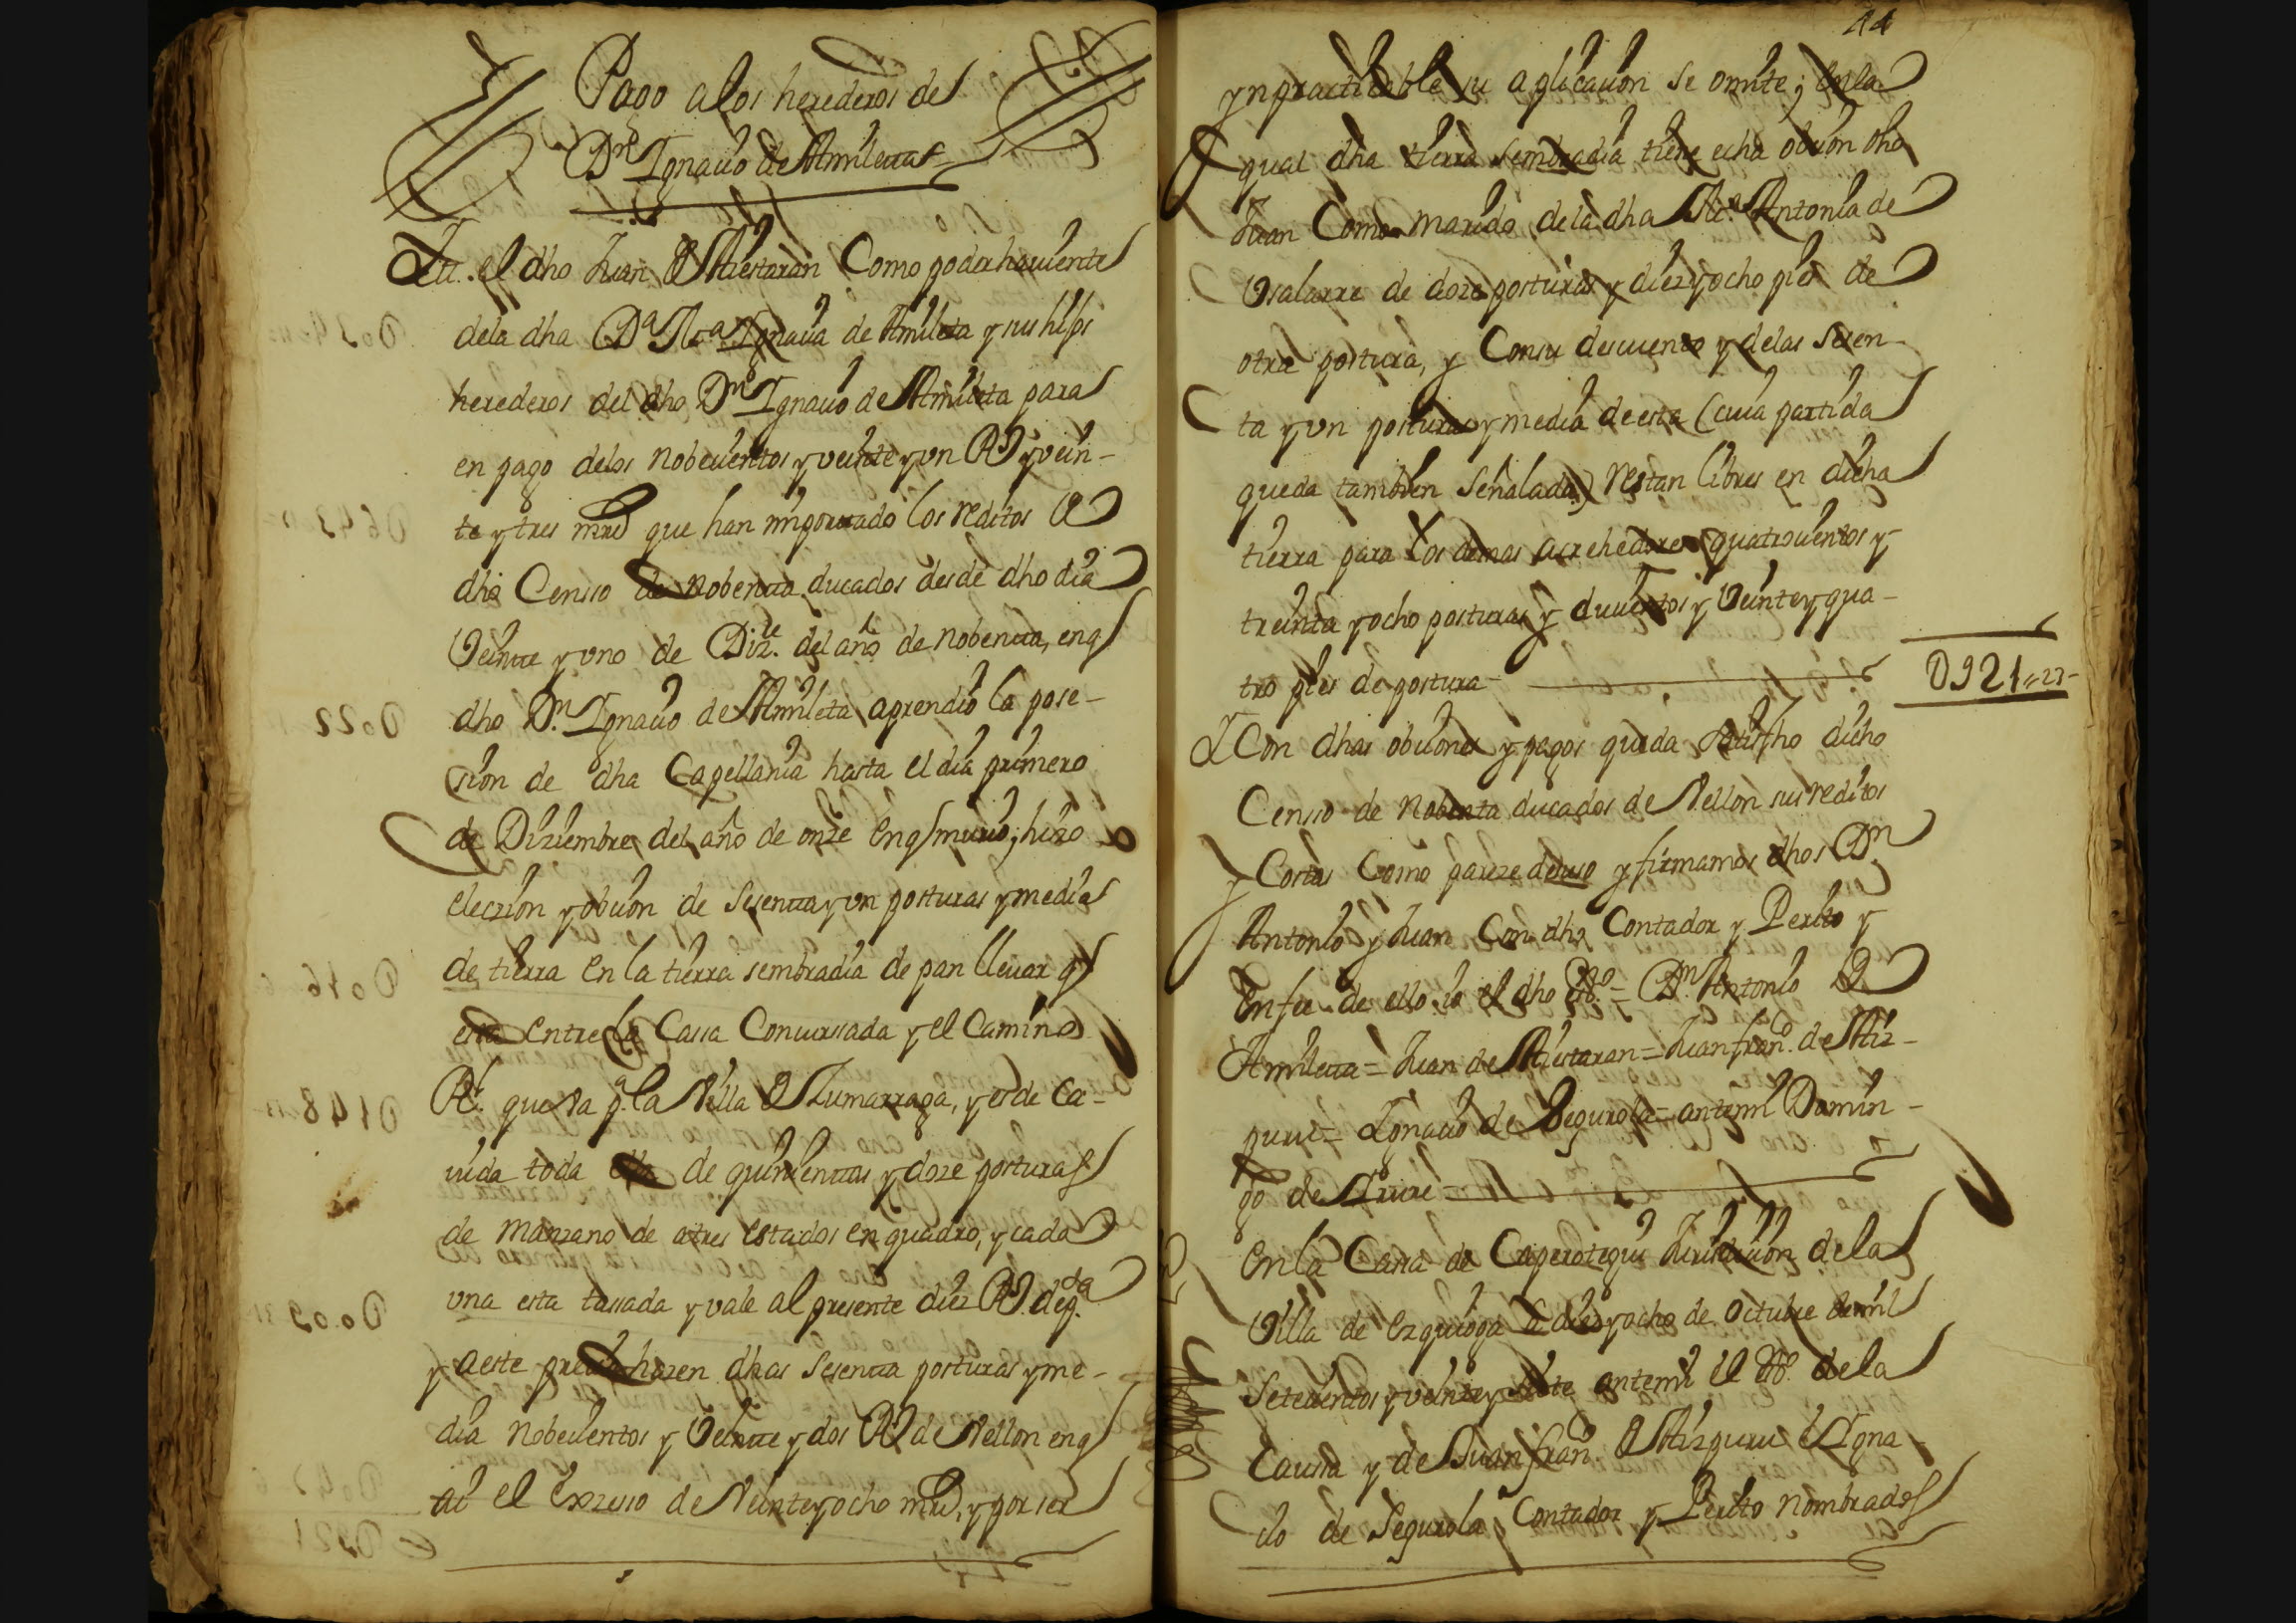 Pago alos herederos de
Dn Ignaçio de Amileta
Itt. el dho Juan de Aiestaran Como poderhauiente
dela dha Da Ma Ignaçia de Amileta y sus hijos
herederos del dho Dn Ignaçio de Amileta para
en pago delos nobeçientos y veinte y un Rs y vein-
te y tres mrs que han importado los reditos de
dho Censso de nobenta ducados desde dho dia
Veinte y uno de Dizre. del año de nobenta, en q
dho Dn. Ignaçio de Amileta aprendio la pose-
sion de dha Capellania hasta el dia primero
de Diziembre del año de onze en q murio; hizo
eleczion y obçion de Sesenta y un posturas y media
de tierra en la tierra sembradia de pan lleuar q
esta entre la Cassa Conçursada y el Camino
Rl. que va pa. la Villa de Zumarraga, y es de Ca-
uida toda ella de quinientas y doze posturas
de manzano de atres estados en quadro, y cada
una esta tassada y vale al presente diez Rs. de pta
y aeste preçio hazen dhas Sesenta posturas y me-
dia nobeçientos y Veinte y dos Rs de Vellon en q
ai el Exzesso de Veinte y ocho mrs, y por ser
44
ynpracticable su aplicaçion se omite; En la
qual dha tierra sembradia tiene echa obçion dho
Juan Como marido dela dha Ma Antonia de
Usalarre de doze posturas y diez y ocho pies de
otra postura, y Con su descuento y delas Sesen-
ta y un posturas y media de esta (cuia partida
queda tambien Señalada) restan libres en dicha
tierra para los demas acrehedores quatroçientos y
treinta y ocho posturas y duçientos y Veinte y qua-
tro pies de postura
0921"23-
I Con dhas obçiones y pagos queda satisfho dicho
Censso de nobenta ducados de Vellon sus reditos
y Costas Como pareze de suso y firmamos dhos Dn
Antonio y Juan Con dho Contador y Perito y
en fee de ello io el dho sno = Dn. Antonio de
Amileta = Juan de Aiestaran = Juan franco. de Aiz-
puru = Ignaçio de Segurola = antemi Domin-
go de Irure =
En la Cassa de Caperotegui Jurisdiçion dela
Villa de Ezquioga a diez y ocho de Octubre de mil
Seteçientos y veinte y siete antemi el sno. dela
Caussa y de Juan fran. de Aizpuru e Igna-
çio de Segurola Contador y Perito nombrados